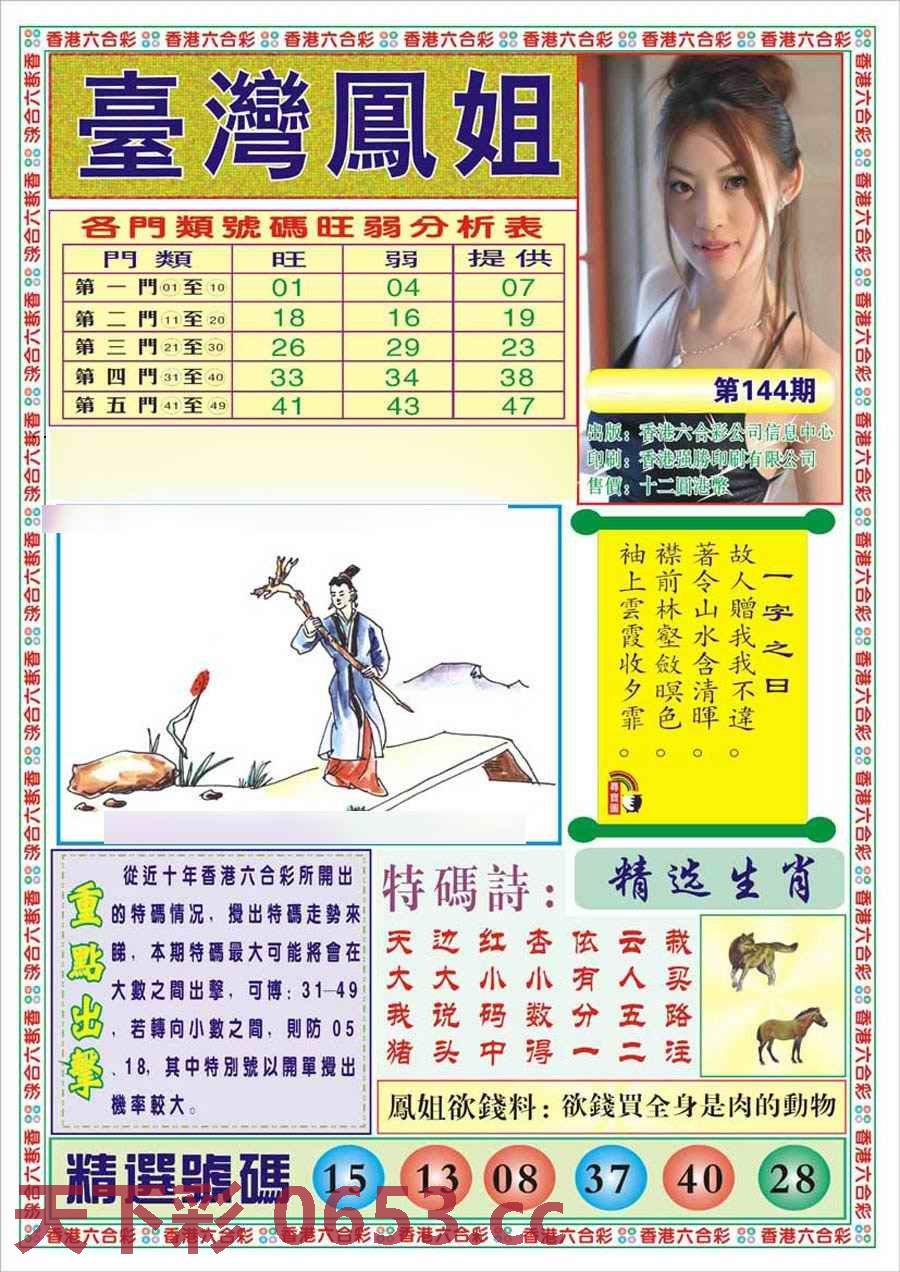 香港六合彩 香港六合彩 香港六合彩 香港六合彩 香港六合彩 香港六合彩 香港六合彩
臺灣鳳姐
各門類號碼旺弱分析表
門類 旺 弱 提供
第一門01至10 01 04 07
第二門11至20 18 16 19
第三門21至30 26 29 23
第四門31至40 33 34 38
第五門41至49 41 43 47
第144期
出版：香港六合彩公司信息中心
印刷：香港强勝印刷有限公司
售價：十二圓港幣
一字之曰
故人贈我我不違。
著令山水含清暉。
襟前林壑斂暝色。
袖上雲霞收夕霏。
尋寶圖
重點出擊
從近十年香港六合彩所開出
的特碼情况，攪出特碼走勢來
睇，本期特碼最大可能將會在
大數之間出擊，可博：31—49
，若轉向小數之間，則防 05
、18，其中特別號以開單攪出
機率較大。
特碼詩：
天边红杏依云栽
大大小小有人买
我说码数分五路
猪头中得一二注
精选生肖
鳳姐欲錢料：欲錢買全身是肉的動物
精選號碼 15 13 08 37 40 28
天下彩 0653.cc
香港六合彩 香港六合彩 香港六合彩 香港六合彩 香港六合彩 香港六合彩 香港六合彩